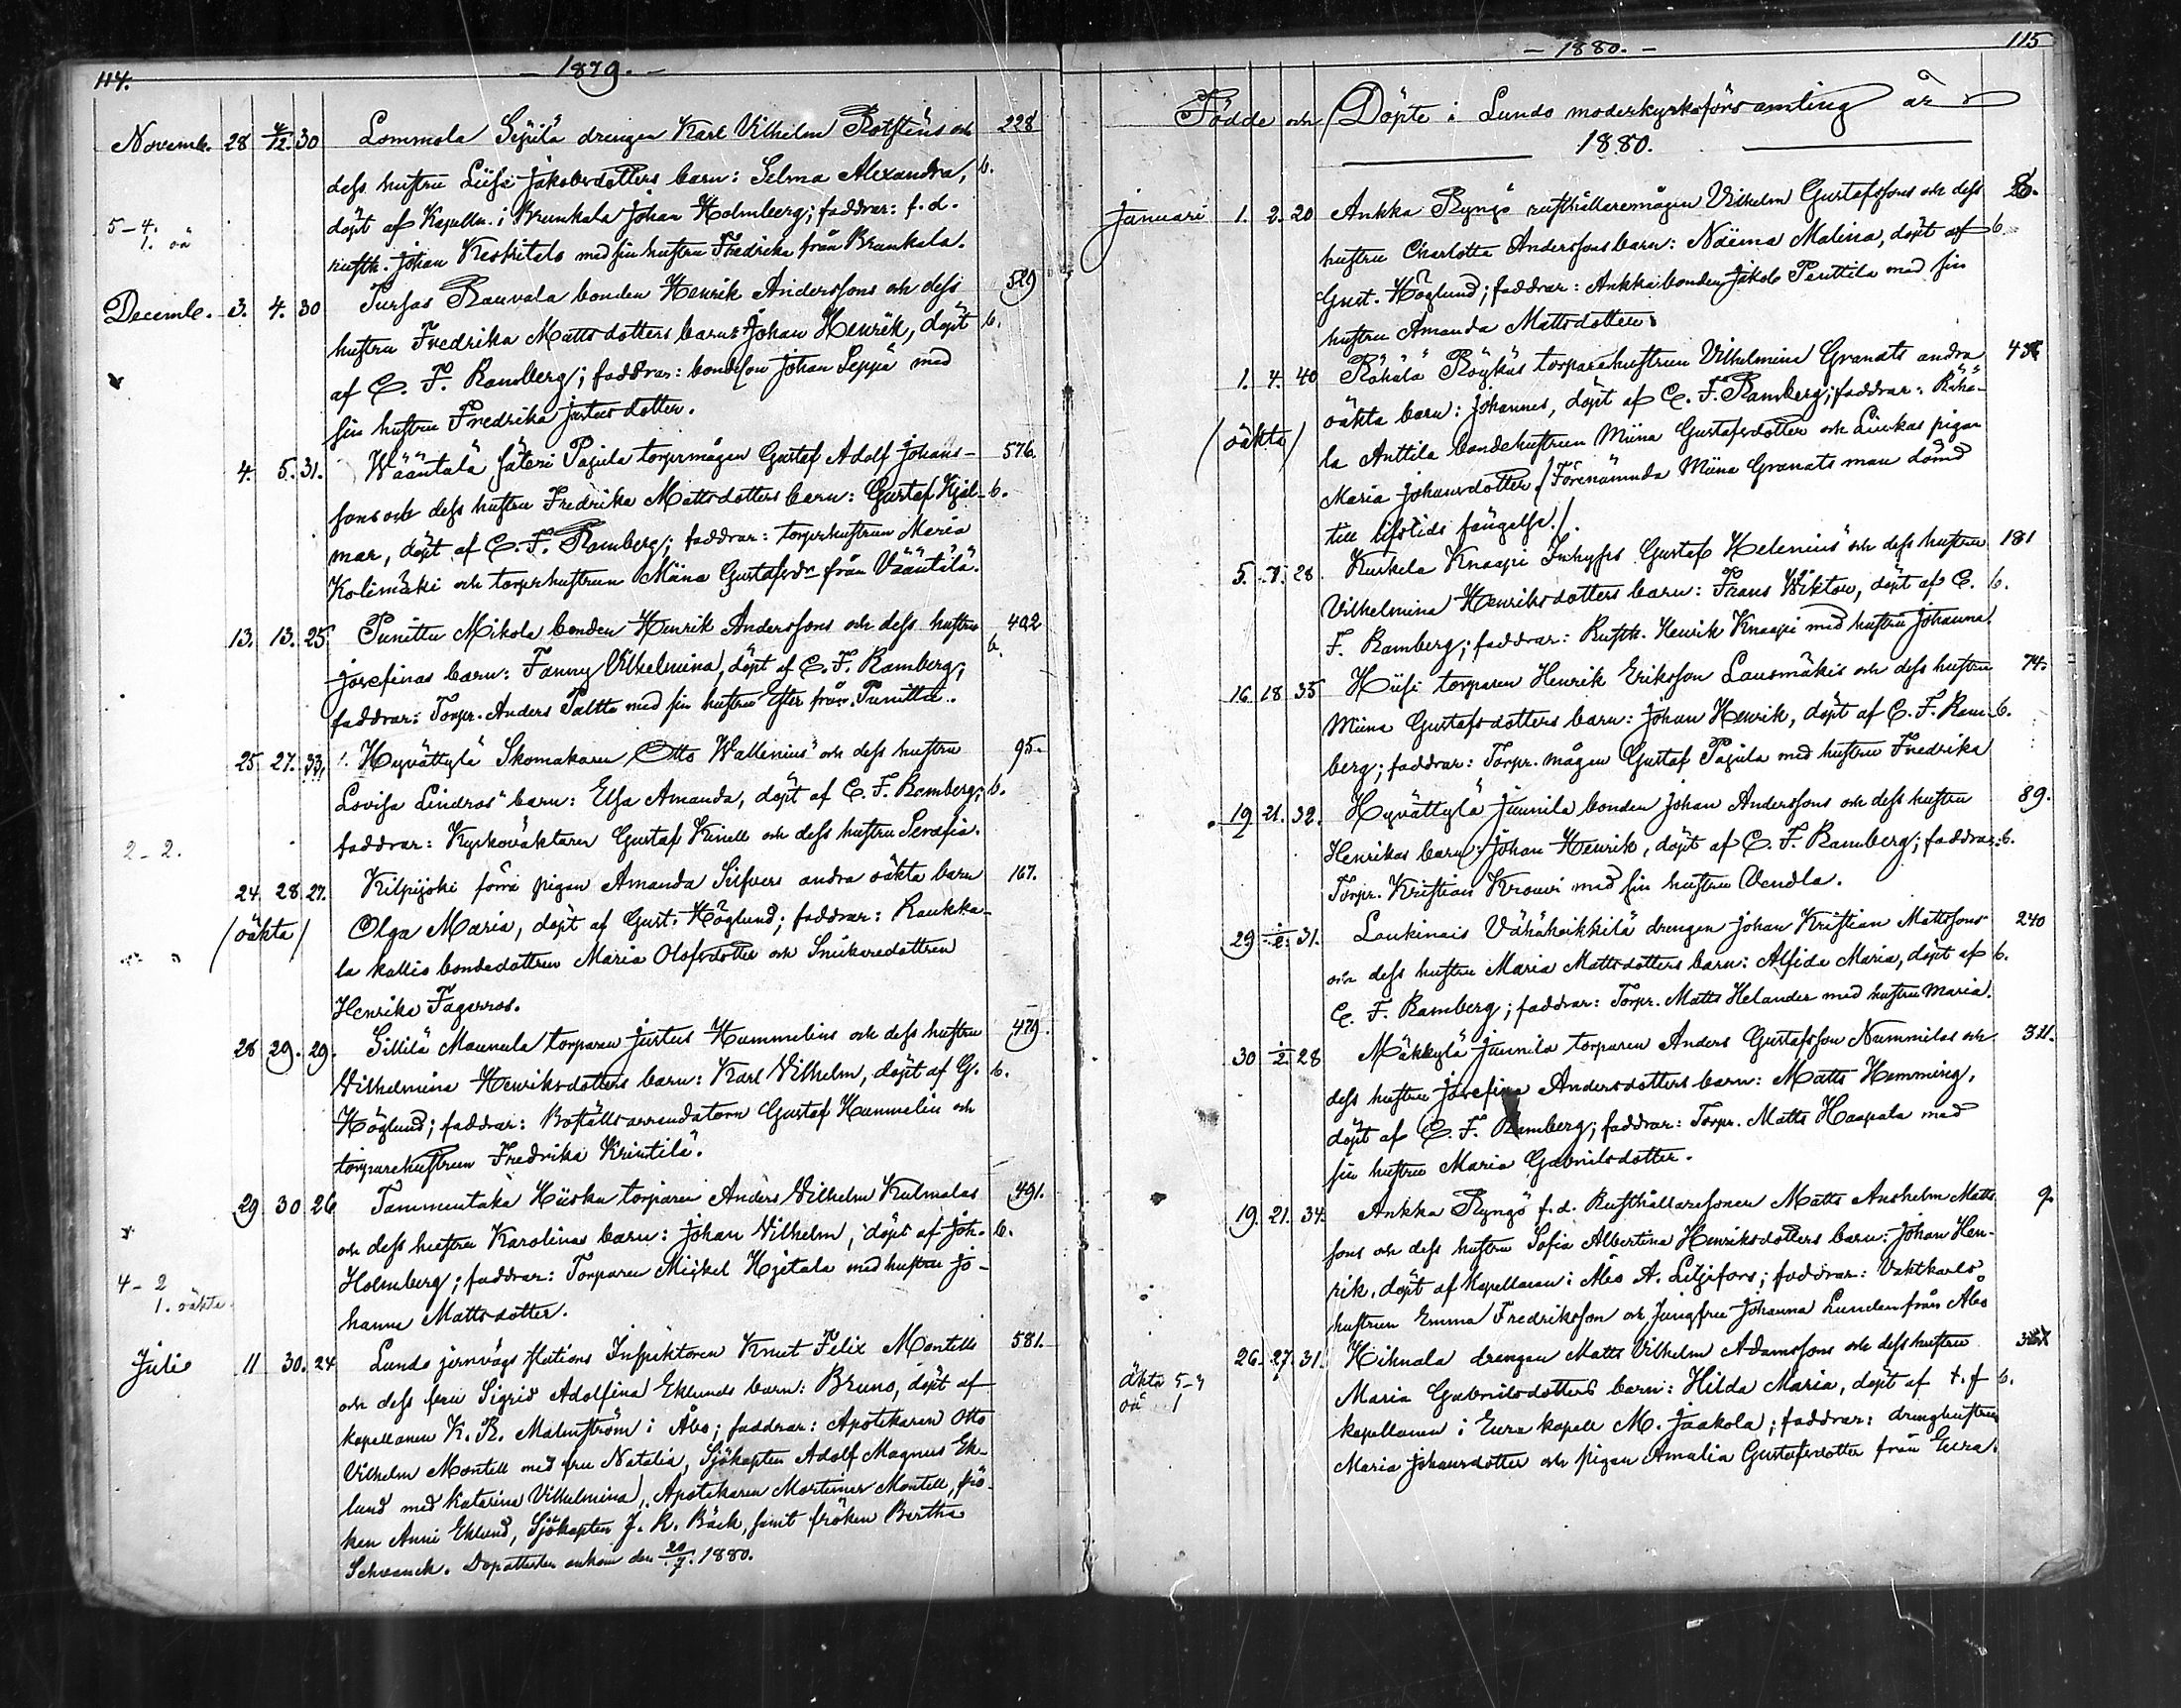 114.
- 1879. -
Novemb. 28 4/12. 30 Lommola Sipilä drengen Karl Vilhelm Rotsténs och 228
dess hustru Liisa Jakobsdotters barn: Selma Alexandra, b.
döpt af Kapellan. i Brunkala Johan Holmberg; faddrar: f. d.
5-4.
1. oä
rusth. Johan Keskitalo med sin hustru Fredrika från Brunkala.
Decemb. 3. 4. 30 Tursas Rauvala bonden Henrik Anderssons och dess 529
hustru Fredrika Mattsdotters barn: Johan Henrik, döpt b.
af C. F. Ramberg; faddrar: bondeson Johan Seppä med
sin hustru Fredrika Justusdotter.
4. 5. 31. Wääntälä säteri Pajula torpmågen Gustaf Adolf Johans- 576.
sons och dess hustru Fredrika Mattsdotters barn: Gustaf Hjal- b.
mar, döpt af C. F. Ramberg; faddrar: torparhustrun Maria
Kolimäki och torparhustrun Miina Gustafsdr från Vääntälä.
13. 13. 25 Punittu Mikola bonden Henrik Anderssons och dess hustru 402
Josefinas barn: Fanny Vilhelmina, döpt af C. F. Ramberg, b.
faddrar: Torpr. Anders Paltta med sin hustru Ester från Punittu.
25 27. 33, Hyvättylä Skomakaren Otto Wallenius och dess hustru 95.
Lovisa Lindros barn: Elsa Amanda, döpt af C. F. Ramberg; b.
faddrar: Kyrkovaktaren Gustaf Kinell och dess hustru Serafia.
2-2.
24 28 27. Kilpijoki förra pigan Amanda Silfvers andra oäkta barn 167.
/oäkta/ Olga Maria, döpt af Gust. Höglund; faddrar: Raukka-
la Kallis bondedottren Maria Olofsdotter och Snickaredottren
Henrika Fagerros.
28 29. 29. Sillilä Maunula torparen Justus Hummelins och dess hustru 479.
Vilhelmina Henriksdotters barn: Karl Vilhelm, döpt af G. b.
Höglund; faddrar: Boställsarrendatorn Gustaf Hummelin och
torparehustrun Fredrika Krintilä.
29 30 26 Tammentaka Hiiska torparen Anders Vilhelm Kulmalas 491.
och dess hustru Karolinas barn: Johan Vilhelm, döpt af Joh. b.
Holmberg; faddrar: Torparen Mickel Hjetala med hustru Jo-
4-2
1. oäkta
hanna Mattsdotter.
Julii 11 30. 24 Lundo jernvägs stations Inspektoren Knut Felix Montells 581.
och dess fru Sigrid Adolfina Eklunds barn: Bruno, döpt af
kapellanen K. R. Malmström i Åbo; faddrar: Apotekaren Otto
Vilhelm Montell med fru Natalia, Sjökapten Adolf Magnus Ek-
lund med Katarina Vilhelmina, Apotekaren Mortimer Montell, frö-
ken Anni Eklund, Sjökapten J. R. Bäck, samt fröken Bertha
Schwanck. Dopattesten ankom den 20/7. 1880.
- 1880. -
115
Födde och Döpte i Lundo moderkyrkoförsamling år
1880.
Januari 1. 2. 20 Ankka Ryngö rusthållaremågen Vilhelm Gustafssons och dess 8.
hustru Charlotta Anderssons barn: Naëma Malina, döpt af b.
Gust. Höglund; faddrar: Ankka bonden Jakob Penttilä med sin
hustru Amanda Mattsdotter.
1. 4. 40 Rähälä Röykäs torparehustrun Vilhelmina Granats andra
oäkta barn: Johannes, döpt af C. F. Ramberg; faddrar: Rähä-
/oäkta/ la Anttila bondehustrun Miina Gustafsdotter och Liukas pigan
Maria Johansdotter. /Förenämnda Miina Granats man dömd
till lifstids fängelse./.
5. 7. 28. Kurkela Knaapi Inhyses Gustaf Helenius och dess hustru 181
Vilhelmina Henriksdotters barn: Frans Wiktor, döpt af C. b.
F. Ramberg; faddrar: Rusth. Henrik Knaapi med hustru Johanna.
16. 18. 35 Hiisi torparen Henrik Eriksson Lausmäkis och dess hustru 74.
Miina Gustafsdotters barn: Johan Henrik, döpt af C. F. Ram- b.
berg; faddrar: Torpr. mågen Gustaf Pajula med hustru Fredrika
19 21. 32. Hyvättylä Junnila bonden Johan Anderssons och dess hustru 89.
Henrikas barn: Johan Henrik, döpt af C. F. Ramberg; faddrar: b.
Torpr. Kristian Krouvi med sin hustru Vendla.
29 1/2. 31. Laukinais Vähäheikkilä drengen Johan Kristian Mattssons 240
och dess hustru Maria Mattsdotters barn: Alfida Maria, döpt af b.
C. F. Ramberg; faddrar: Torpr. Matts Helander med hustru Maria.
30 1/2 28 Mäkkylä Junnila torparen Anders Gustafsson Nummilas och 321.
dess hustru Josefina Andersdotters barn: Matts Hemming,
döpt af C. F. Ramberg; faddrar: Torpr. Matts Haapala med
sin hustru Maria Gabrielsdotter.
19. 21. 34. Ankka Ryngö f. d. Rusthållaresonen Matts Anshelm Matts- 9.
sons och dess hustru Sofia Albertina Henriksdotters barn: Johan Hen-
rik, döpt af Kapellanen i Åbo A. Liljefors; faddrar: Vaktkarls
hustrun Emma Fredriksson och Jungfru Johanna Lunden från Åbo
26. 27. 31. Hihnala drengen Matts Vilhelm Adamssons och dess hustru
äkta 5-4
oä 1
Maria Gabrielsdotters barn: Hilda Maria, döpt af t. f b.
kapellanen i Eura kapell M. Jaakola; faddrar: drenghustrun
Maria Johansdotter och pigan Amalia Gustafsdotter från Eura.